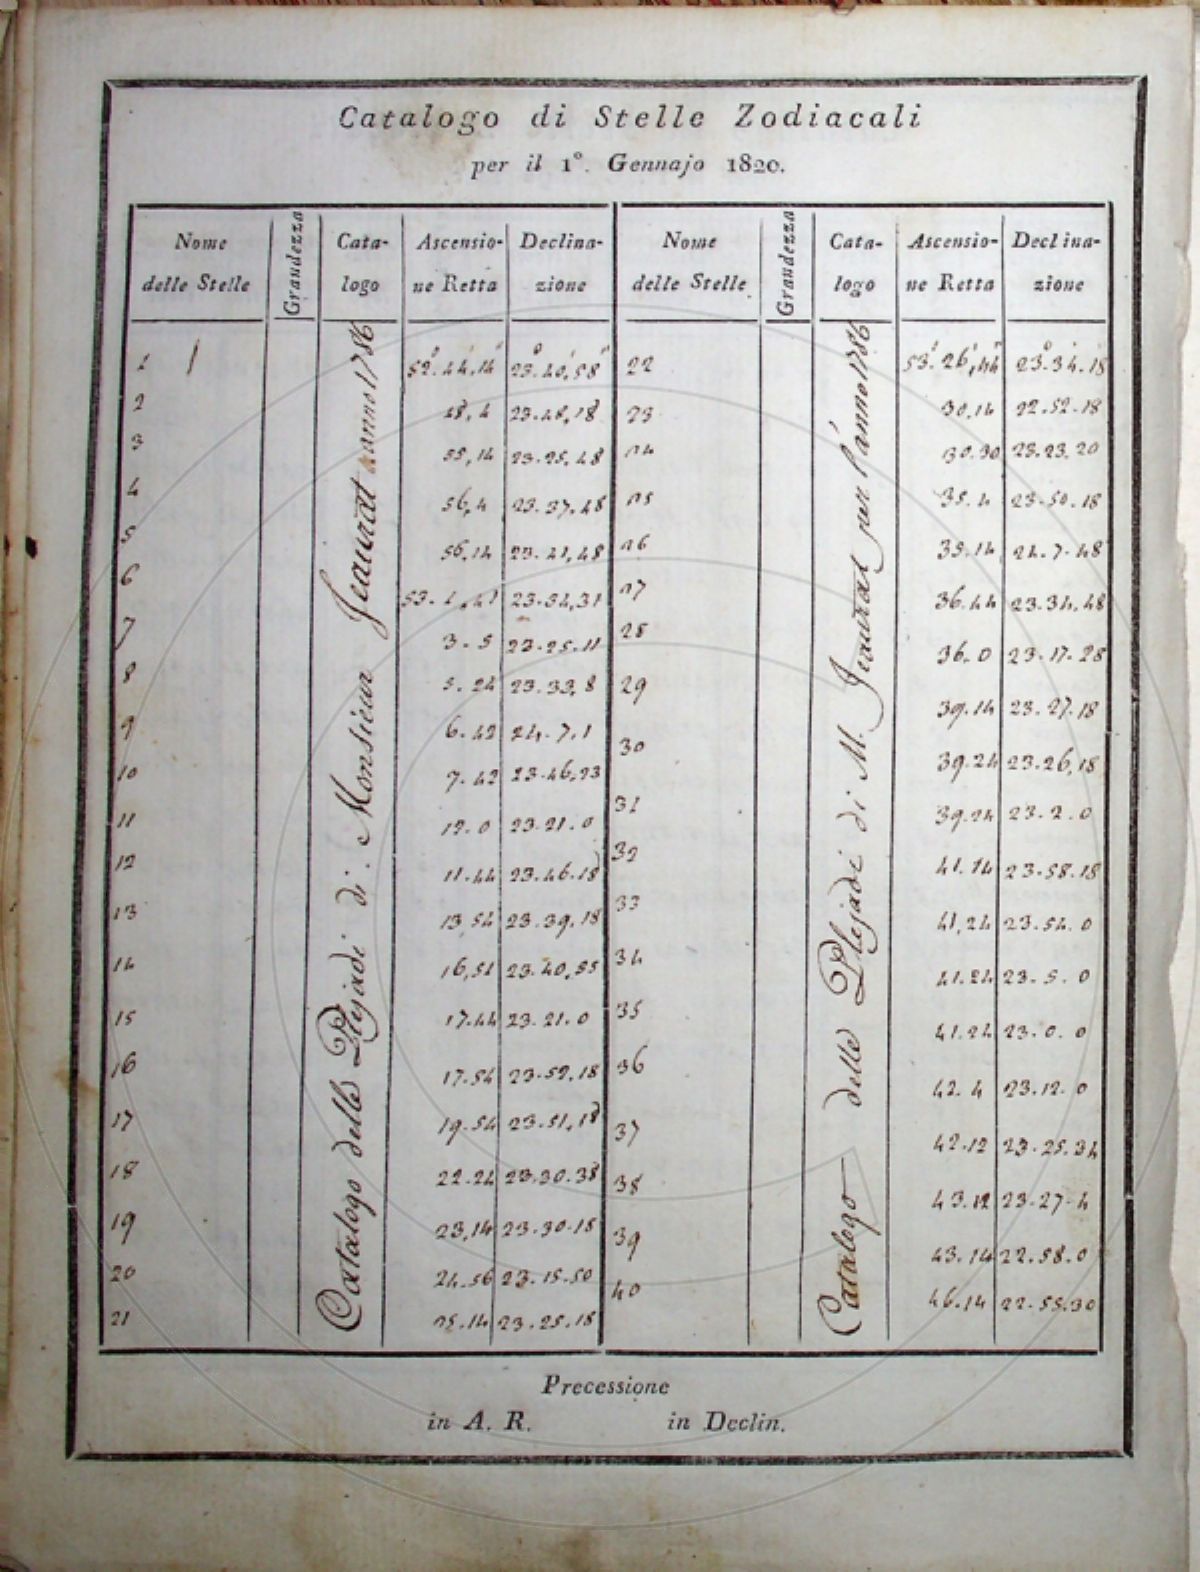 Catalogo di Stelle Zodiacali
per il 1°. Gennajo 1820.
Nome delle Stelle | Grandezza | Cata-logo | Ascensio-ne Retta | Declina-zione
Catalogo delle Plejadi di Monsieur Jeaurat anno 1786
1 52°.44'.14" 23°.40'.58"
2 48.4 23.48.18
3 55.14 23.25.48
4 56.4 23.37.48
5 56.14 23.41.48
6 53.1.41 23.34.31
7 3.5 23.25.11
8 5.24 23.33.8
9 6.42 24.7.1
10 7.42 23.46.23
11 12.0 23.21.0
12 11.44 23.46.18
13 13.54 23.39.18
14 16.51 23.40.55
15 17.44 23.21.0
16 17.54 23.52.18
17 19.54 23.51.18
18 22.24 23.30.38
19 23.14 23.30.18
20 24.56 23.15.50
21 25.14 23.25.18
Nome delle Stelle | Grandezza | Cata-logo | Ascensio-ne Retta | Declina-zione
Catalogo delle Plejadi di M. Jeaurat per l'anno 1786
22 53°.26'.44" 23°.34'.18
23 30.14 22.52.18
24 30.30 23.23.20
25 35.4 23.50.18
26 35.14 24.7.48
27 36.44 23.34.48
28 36.0 23.17.28
29 39.14 23.27.18
30 39.24 23.26.18
31 39.24 23.2.0
32 41.14 23.58.18
33 41.24 23.54.0
34 41.24 23.5.0
35 41.24 23.0.0
36 42.4 23.12.0
37 42.12 23.25.34
38 43.12 23.27.4
39 43.14 22.58.0
40 46.14 22.55.30
Precessione
in A. R. in Declin.